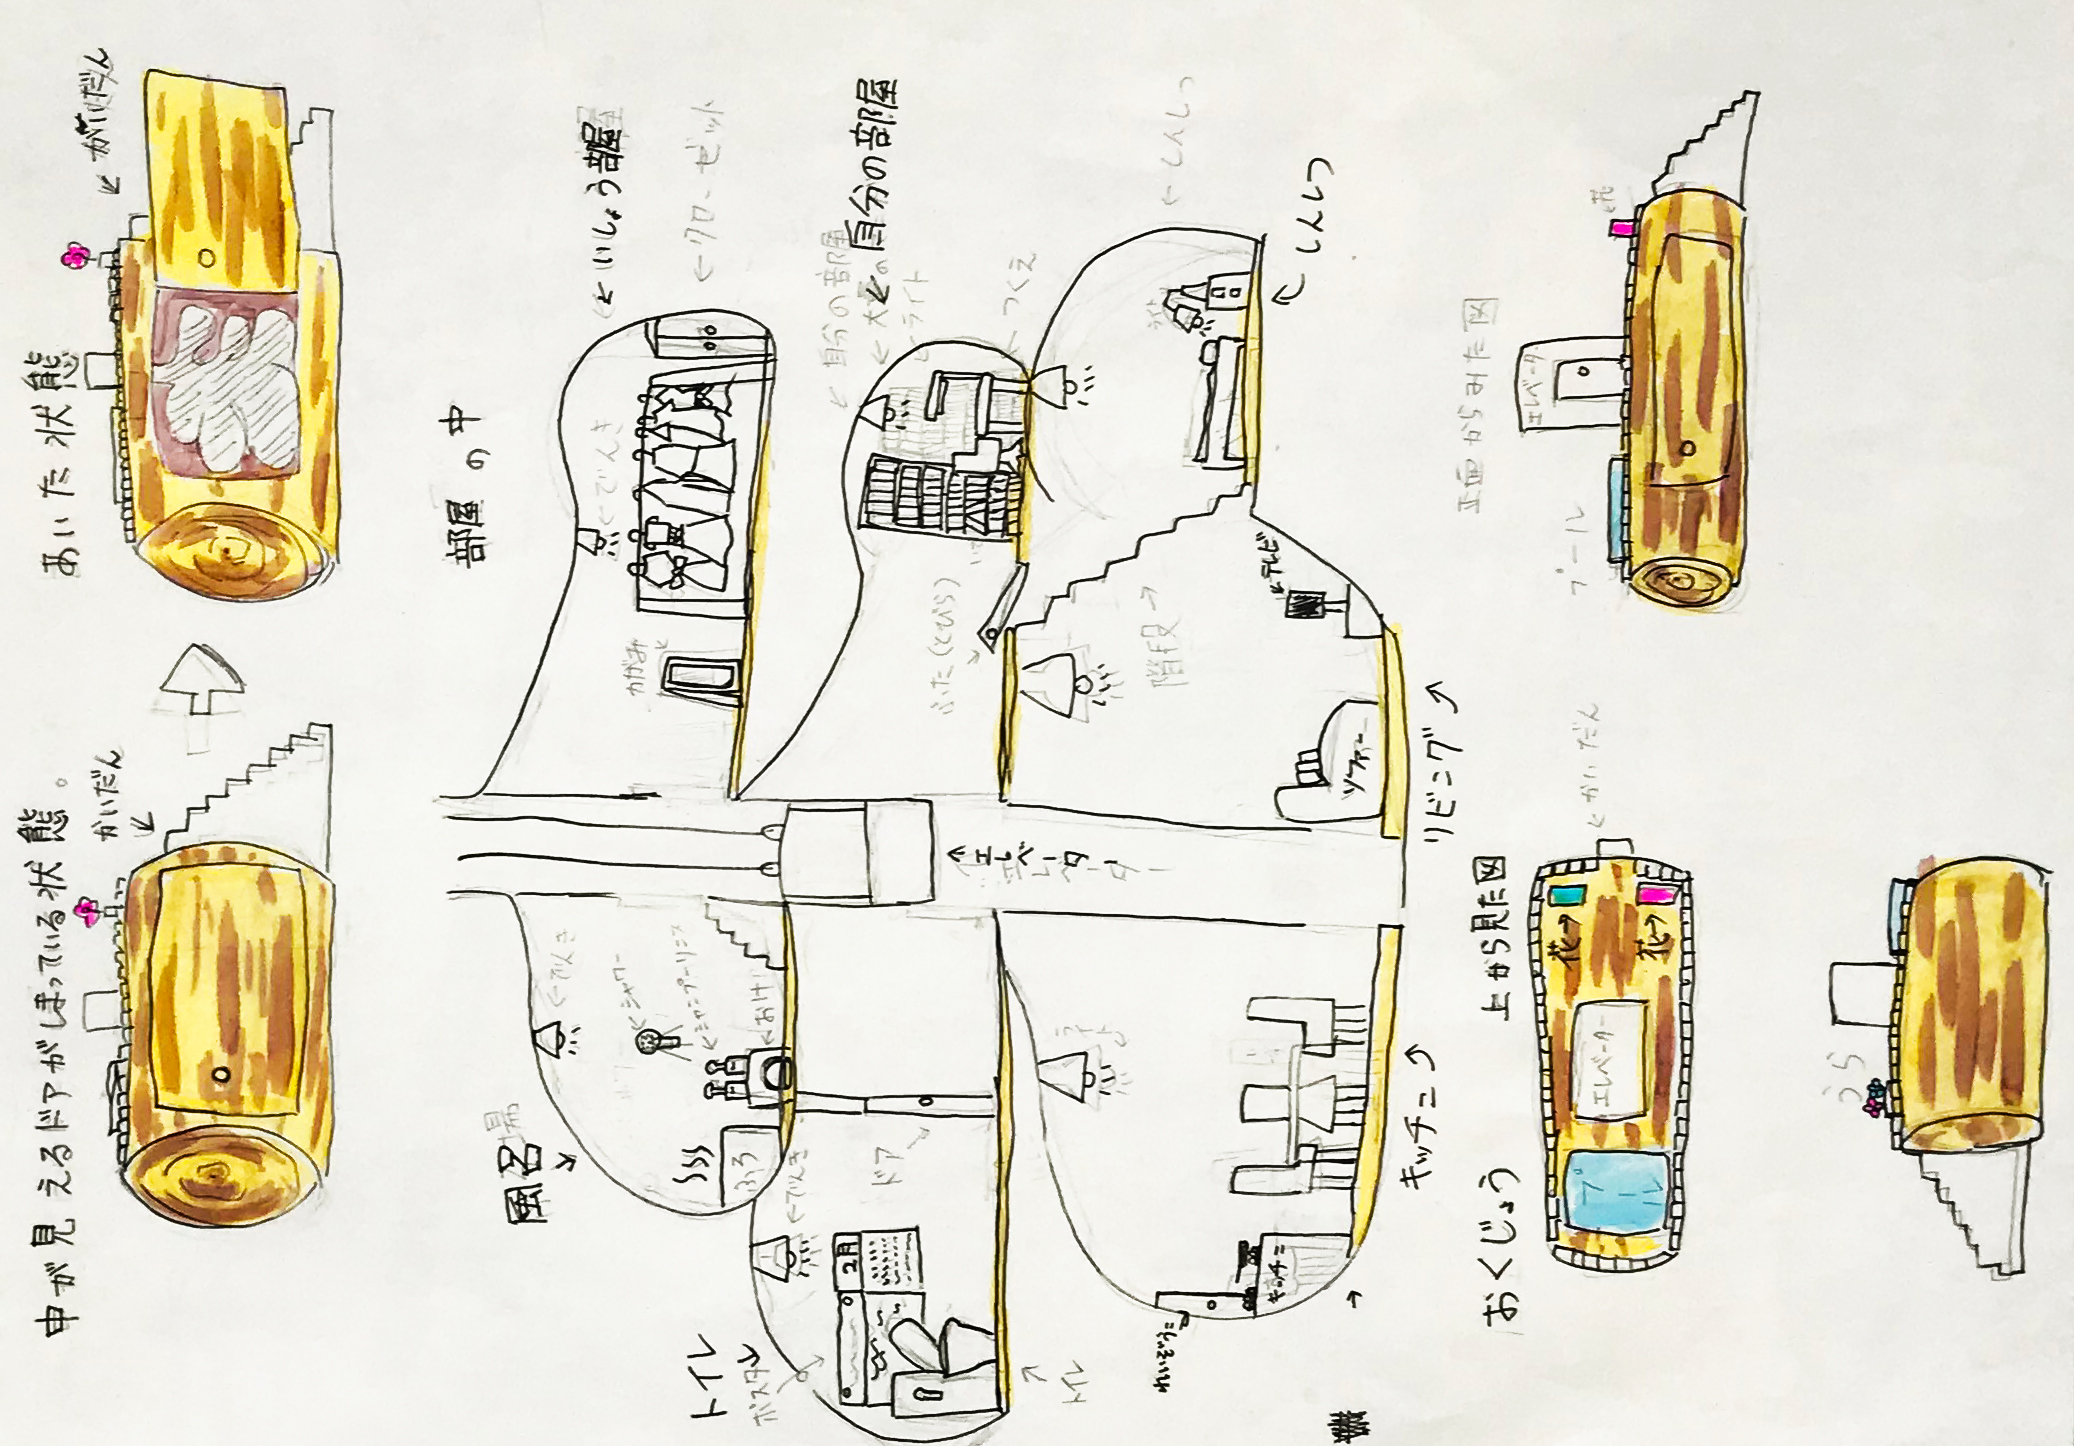 中が見えるドアがしまっている状態。
かいだん
あいた状態
がいだん
部屋の中
風呂場
でんき
シャワー
シャンプーリンス
おけ
ふろ
いしょう部屋
クローゼット
でんき
かがみ
トイレ
ポスター
でんき
2月
ドア
トイレ
エレベーター
自分の部屋
自分の部屋
ライト
つくえ
ふた(とびら)
しんしつ
しんしつ
階段
テレビ
ソファー
リビング
ライト
キッチン
キッチン
れいぞうこ
おくじょう
上から見た図
かいだん
花
花
エレベーター
プール
正面からみた図
エレベータ
プール
花
うら